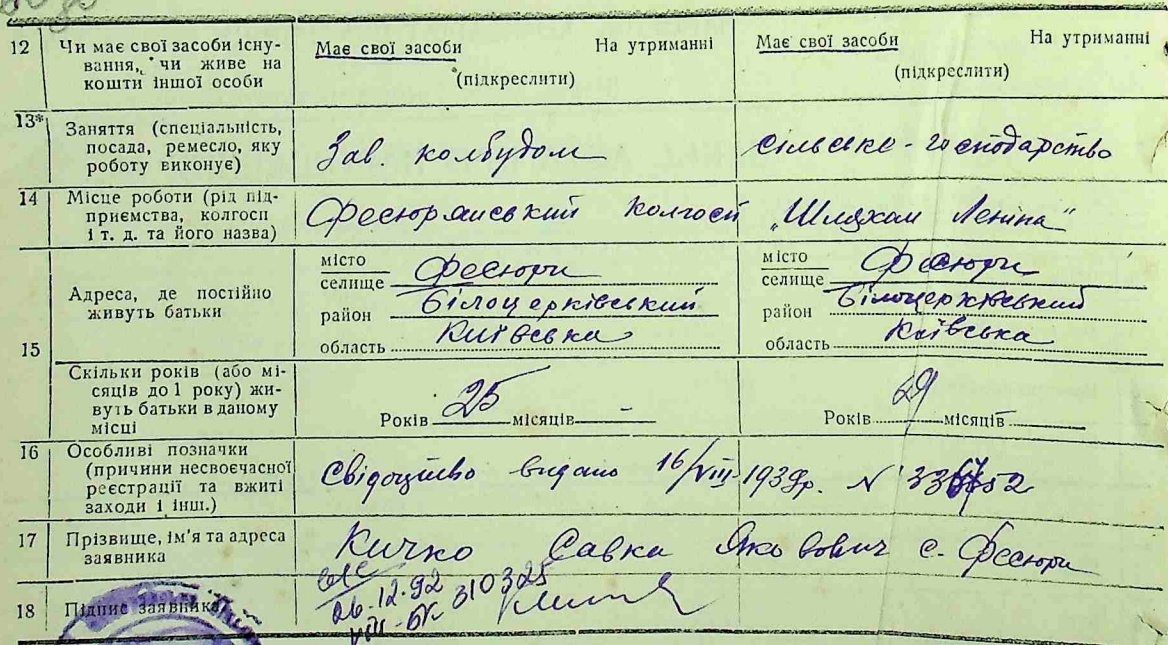 12 Чи має свої засоби існу-
вання, чи живе на
кошти іншої особи
Має свої засоби На утриманні
(підкреслити)
Має свої засоби На утриманні
(підкреслити)
13* Заняття (спеціальність,
посада, ремесло, яку
роботу виконує)
Зав. колбудом
сільсько-господарство
14 Місце роботи (рід під-
приємства, колгосп
і т. д. та його назва)
Фесюрянський колгосп "Шляхом Леніна"
15 Адреса, де постійно
живуть батьки
місто
селище Фесюри
район Білоцерківський
область Київська
місто
селище Фесюри
район Білоцерківський
область Київська
Скільки років (або мі-
сяців до 1 року) жи-
вуть батьки в даному
місці
Років 25 місяців –
Років 29 місяців –
16 Особливі позначки
(причини несвоєчасної
реєстрації та вжиті
заходи і інш.)
Свідоцтво видано 16/VIII-1939р. N
17 Прізвище, ім'я та адреса
заявника
Кичко Савка Якович с. Фесюри
18 Підпис заявника
26.12.92
VIII-БК 310325